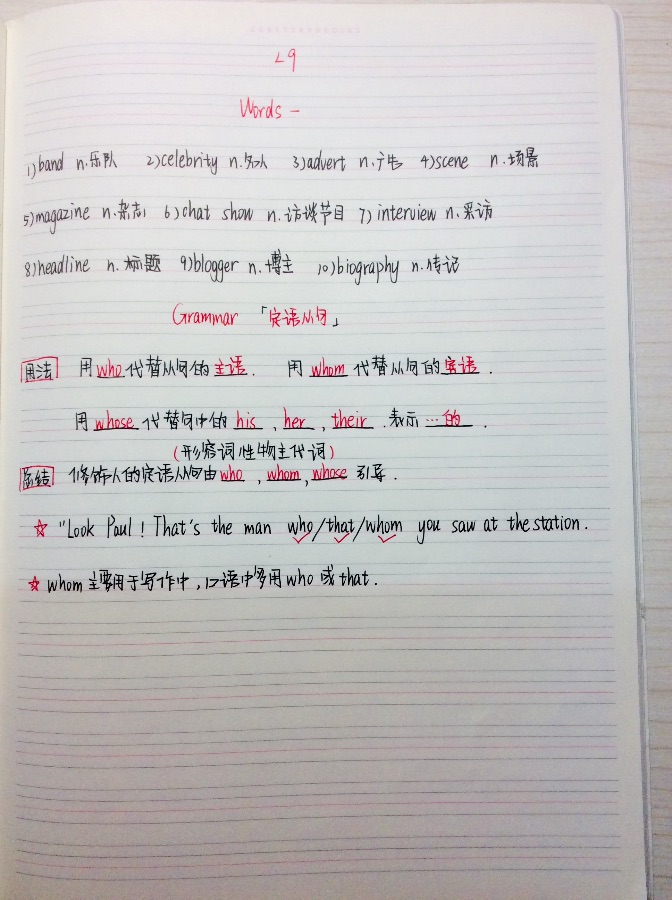 L9
Words -
1) band n.乐队 2) celebrity n.名人 3) advert n.广告 4) scene n.场景
5) magazine n.杂志 6) chat show n.访谈节目 7) interview n.采访
8) headline n.标题 9) blogger n.博主 10) biography n.传记
Grammar 「定语从句」
用法 用 who 代替从句的主语. 用 whom 代替从句的宾语.
用 whose 代替句中的 his, her, their.表示…的.
(形容词性物主代词)
总结 修饰人的定语从句由who, whom, whose 引导.
☆ "Look Paul! That's the man who/that/whom you saw at the station.
☆ whom 主要用于写作中,口语中多用 who 或 that.